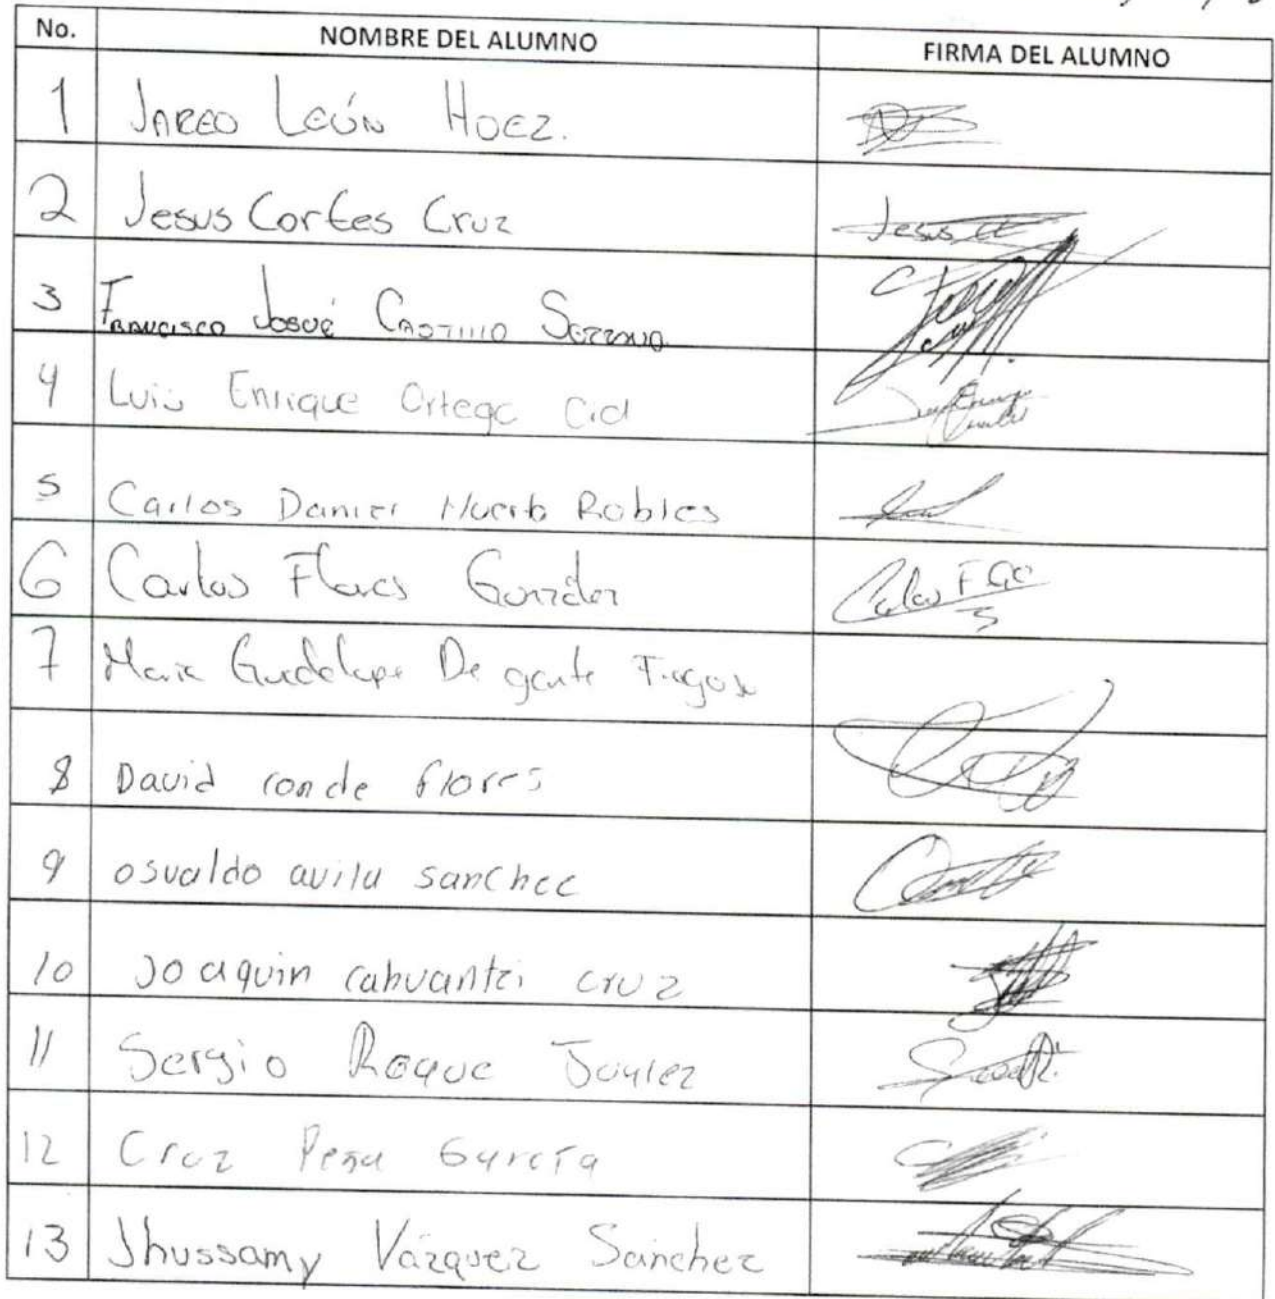 No. NOMBRE DEL ALUMNO FIRMA DEL ALUMNO
1 JARED León Hdez.
2 Jesus Cortes Cruz Jesus
3 Francisco Josué Castillo Serrano
4 Luis Enrique Ortega Cid
5 Carlos Daniel Huerta Robles
6 Carlos Flores González Carlos F Go
7 Maria Guadalupe De gante Fragoso
8 David conde flores
9 osvaldo avila sanchec
10 Joaquin cahuantzi cruz
11 Sergio Roque Juarez
12 Cruz Peña García
13 Jhussamy Vázquez Sánchez